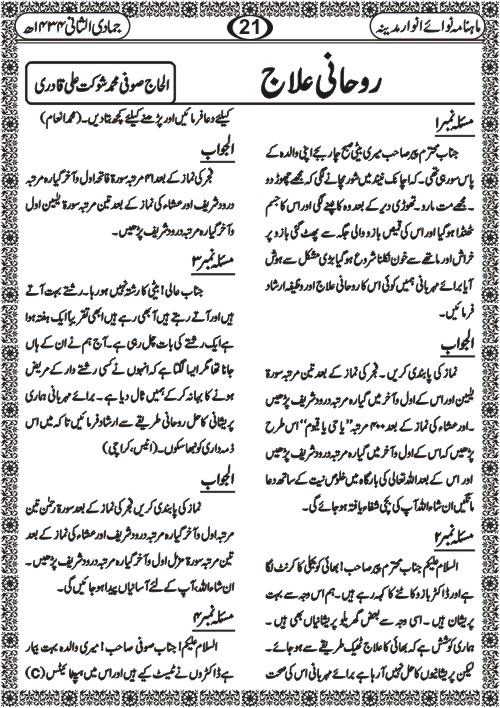 ماہنامہ نوائے انوار مدینہ
21
جمادی الثانی ۱۴۳۴ھ
روحانی علاج
الحاج صوفی محمد شوکت علی قادری
مسئلہ نمبر ۱
جناب محترم پیر صاحب میری بیٹی صبح چار بجے اپنی والدہ کے
پاس سو رہی تھی۔ کہ اچانک نیند میں شور مچانے لگی کہ مجھے چھوڑ دو
۔ مجھے مت مارو۔ تھوڑی دیر کے بعد وہ کانپنے لگی اور اس کا جسم
ٹھنڈا ہو گیا اور اس کی قمیص بازو والی جگہ سے پھٹ گئی بازو پر
خراش اور ماتھے سے خون نکلنا شروع ہو گیا بڑی مشکل سے ہوش
آیا برائے مہربانی ہمیں کوئی اس کا روحانی علاج اور وظیفہ ارشاد
فرمائیں۔
الجواب
نماز کی پابندی کریں۔ فجر کی نماز کے بعد تین مرتبہ سورۃ
یٰسین اور اس کے اول و آخر میں گیارہ مرتبہ درود شریف پڑھیں
۔ اور عشاء کی نماز کے بعد ۳۰۰ مرتبہ "یا حی یا قیوم" اس طرح
پڑھیں کہ اس کے اول و آخر میں گیارہ مرتبہ درود شریف پڑھیں
اور اس کے بعد اللہ تعالی کی بارگاہ میں خلوص نیت کے ساتھ دعا
مانگیں ان شاء اللہ آپ کی بچی شفاء یافتہ ہو جائے گی۔
مسئلہ نمبر ۲
السلام علیکم جناب محترم پیر صاحب! بھائی کو بجلی کا کرنٹ لگا
ہے اور ڈاکٹر بازو کاٹنے کا کہہ رہے ہیں۔ ہم اس وجہ سے بہت
پریشان ہیں۔ اسی وجہ سے بعض گھریلو پریشانیاں بھی ہیں۔
ہماری کوشش ہے کہ بھائی کا علاج ٹھیک طریقے سے ہو جائے۔
لیکن پریشانیوں کا حل نہیں آ رہا ہے برائے مہربانی اس کی صحت
کیلئے دعا فرمائیں اور پڑھنے کیلئے کچھ بتا دیں۔ (محمد انعام)
الجواب
فجر کی نماز کے بعد ۴۱ مرتبہ سورۃ فاتحہ اول و آخر گیارہ مرتبہ
درود شریف اور عشاء کی نماز کے بعد تین مرتبہ سورۃ یٰسین اول
و آخر گیارہ مرتبہ درود شریف پڑھیں۔
مسئلہ نمبر ۳
جناب عالی! بیٹی کا رشتہ نہیں ہو رہا۔ رشتے بہت آتے
ہیں اور آتے رہتے ہیں آ بھی رہے ہیں ابھی تقریباً ایک ہفتہ ہوا
ہے ایک رشتے کی بات چل رہی ہے۔ آج ہم نے ان کے ہاں
جانا تھا مگر ایسا لگتا ہے کہ انہوں نے کسی رشتے دار کے مریض
ہونے کا بہانہ کر کے ہمیں ٹال دیا ہے۔ برائے مہربانی ہماری
پریشانی کا حل روحانی طریقے سے ارشاد فرمائیں تاکہ میں اس
ذمہ داری کو نبھا سکوں۔ (انیس، کراچی)
الجواب
نماز کی پابندی کریں فجر کی نماز کے بعد سورۃ رحمٰن تین
مرتبہ اول و آخر گیارہ مرتبہ درود شریف اور عشاء کی نماز کے بعد
تین مرتبہ سورۃ مزمل اول و آخر گیارہ مرتبہ درود شریف پڑھیں۔
ان شاء اللہ آپ کے لئے آسانیاں پیدا ہو جائیں گی۔
مسئلہ نمبر ۴
السلام علیکم! جناب صوفی صاحب! میری والدہ بہت بیمار
ہے ڈاکٹروں نے ٹیسٹ کیے ہیں اور اس میں ہیپاٹیٹس (C)